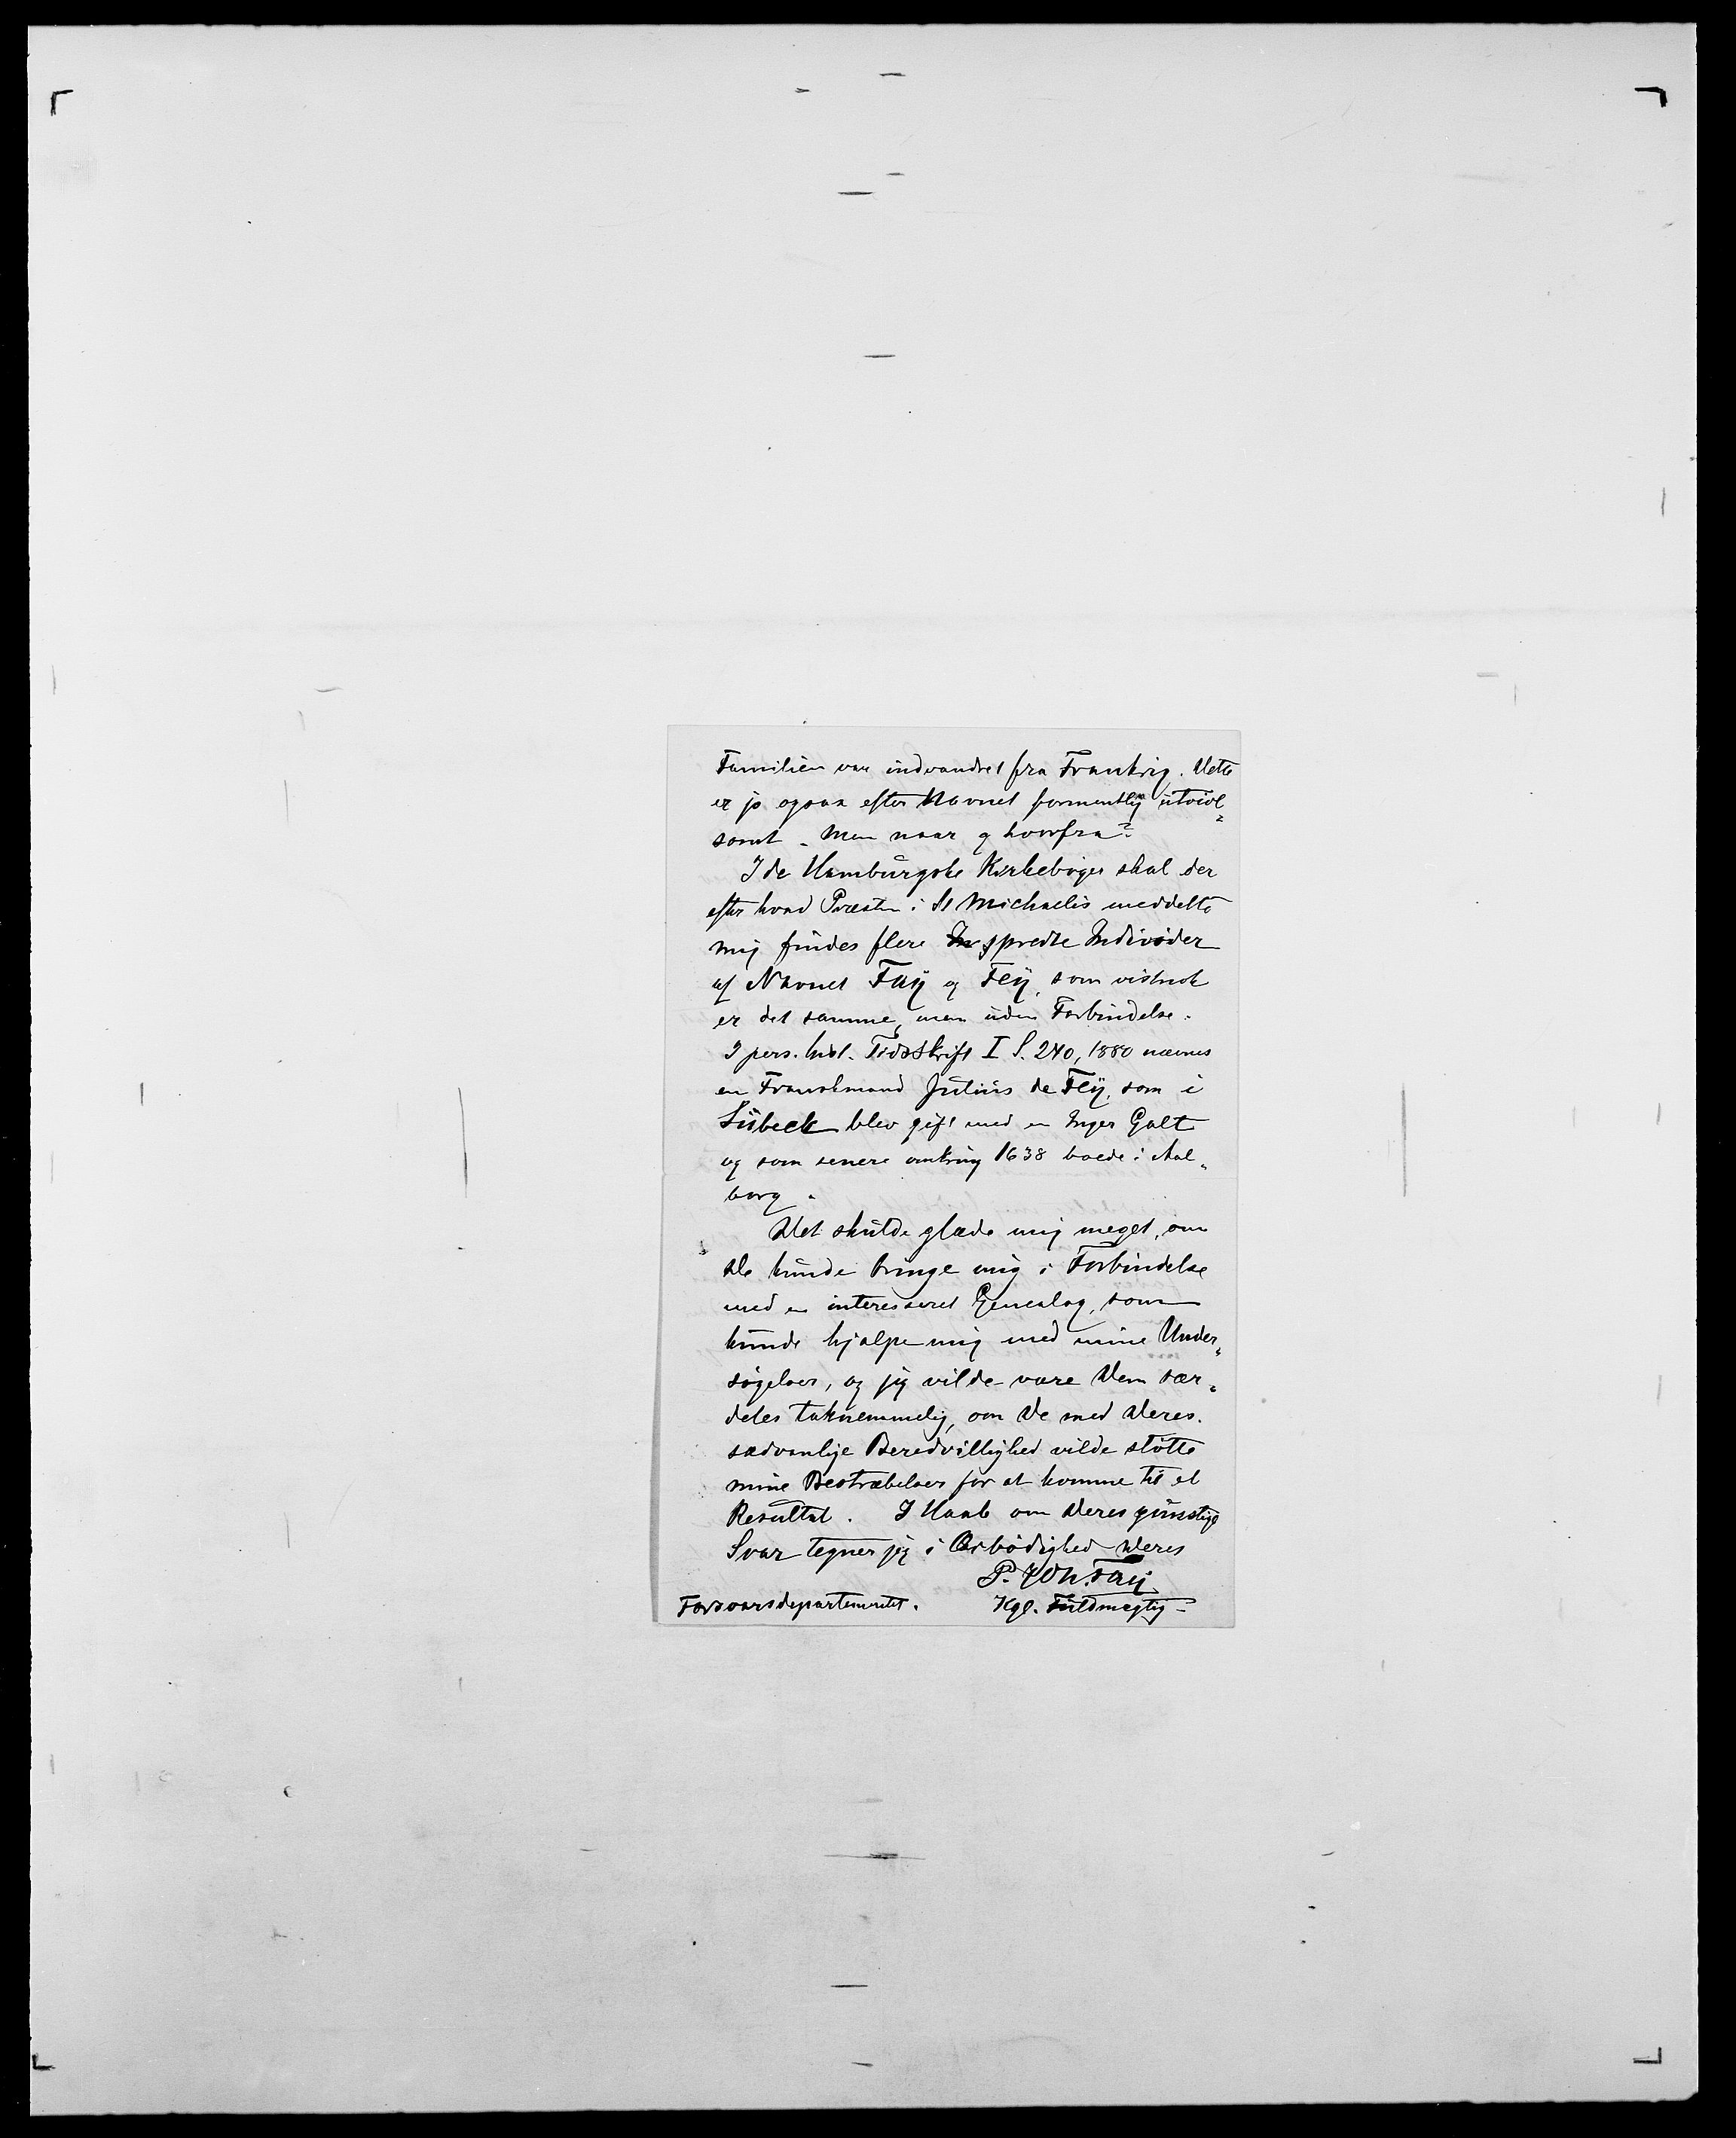 Familien var indvandret fra Frankrig. Dette
er jo ogsaa efter Navnet formentlig utvivl-
somt. Men naar og hvorfra?
I de Hamburgske Kirkebøger skal der
efter hvad Præsten i St Michaelis meddelte
mig findes flere spredte Individer
af Navnet Faÿ og Feÿ, som vistnok
er det samme, men uden Forbindelse.
I pers. hist. Tidsskrift I S. 240, 1880 nævnes
en Franskmand Julius de Feÿ, som i
Lübeck blev gift med en Inger Galt
og som senere omkring 1638 boede i Aal-
borg.
Det skulde glæde mig meget, om
De kunde bringe mig i Forbindelse
med en interesseret Genealog, som
kunde hjælpe mig med mine Under-
søgelser, og jeg vilde være Dem sær-
deles taknemmelig, om De med Deres
sædvanlige Beredvillighed vilde støtte
mine Bestræbelser for at komme til et
Resultat. I Haab om Deres gunstige
Svar tegner jeg i Ærbødighed Deres
P. Joh. Faÿ
Forsvarsdepartementet. Kgl. Fuldmægtig